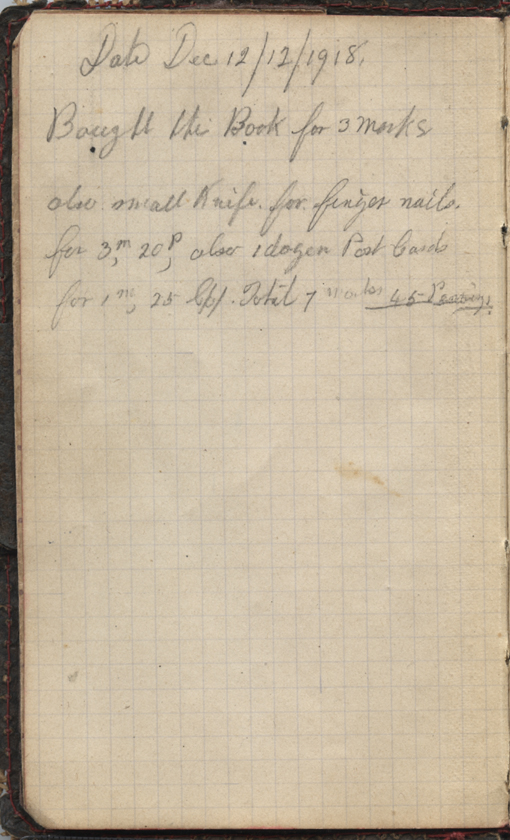 Date Dec 12/12/1918.
Bought this Book for 3 marks
also small Knife. for finger nails.
for 3m, 20P, also 1 dozen Post Cards
for 1m, 25 Total 7 marks 45 Pennings